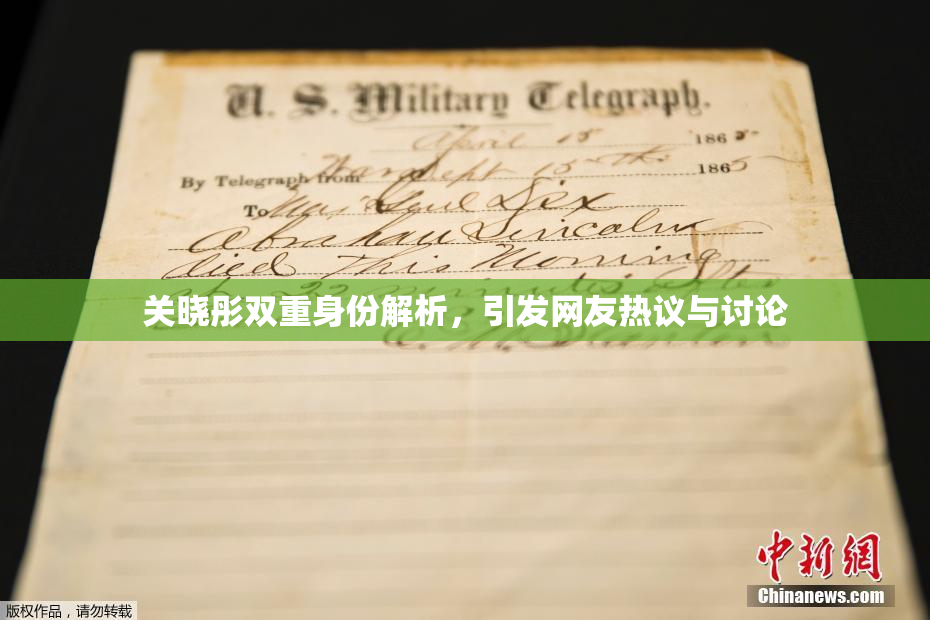 U. S. Military Telegraph.
April 15 1865
By Telegraph from War Dept 15th 1865
To Maj Genl Dix
Abraham Lincoln
died This Morning
at 22 minutes after
关晓彤双重身份解析，引发网友热议与讨论
E. M. Stanton
中新网
Chinanews.com
版权作品，请勿转载